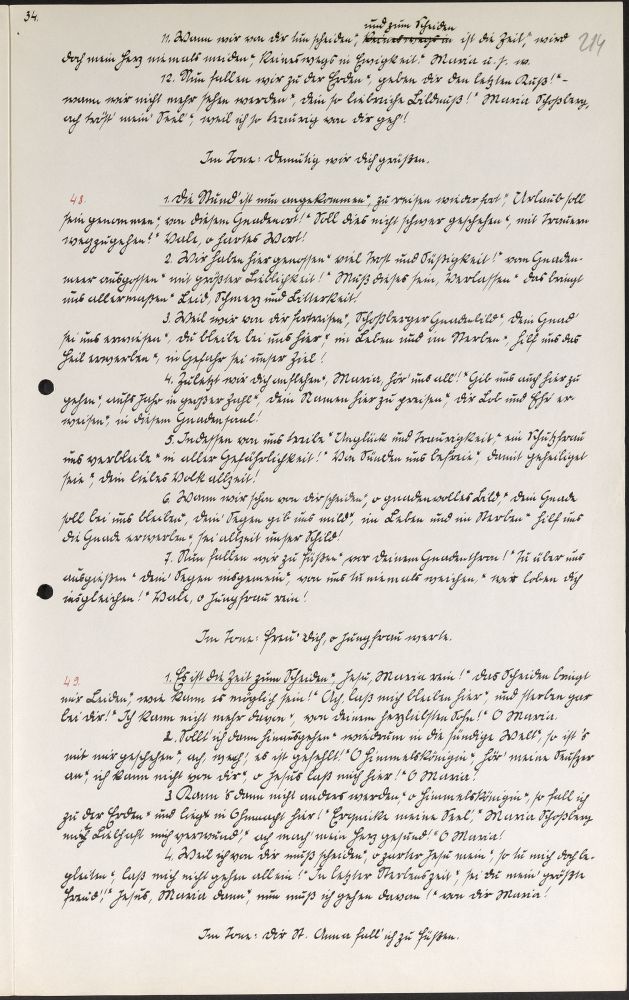 34.
und zum Scheiden
214
11. Wann wir von dir tun scheiden*, keineswegs in ist die Zeit,* wird
doch mein Herz niemals meiden* keineswegs in Ewigkeit.* Maria u. s. w.
12. Nun fallen wir zu der Erden*, geben dir den letzten Kuß!*-
wann wir nicht mehr sehen werden*, dein so liebreiche Bildnuß!* Maria Schoßberg,
ach tröst' mein' Seel'*, weil ich so traurig von dir geh'!
Im Tone: Demütig wir dich grüßen.
48.
1. Die Stund' ist nun angekommen*, zu reisen wieder fort,* Urlaub soll
sein genommen*, von diesem Gnadenort!* Soll dies nicht schwer geschehen*, mit Trauern
wegzugehen?* Vale, o hartes Wort!
2. Wir haben hier genossen* viel Trost und Süßigkeit!* vom Gnaden-
meer ausgossen* mit größter Lieblichkeit!* Muß dieses sein, verlassen* das bringt
uns allermaßen* Leid, Schmerz und Bitterkeit!
3. Weil wir von dir fortreisen*, Schoßberger Gnadenbild*, dein Gnad'
sei uns erwiesen*, du bleibe bei uns hier* im Leben und im Sterben*, hilf uns das
Heil erwerben*, in Gefahr sei unser Ziel!
4. Zuletzt wir dich anflehen*, Maria, hör' uns all'!* Gib uns auch hier zu
gehen*, aufs Jahr in großer Zahl*, dein Namen hier zu preisen*, dir Lob und Ehr' er-
weisen*, in diesem Gnadensaal!
5. Indessen von uns treibe* Unglück und Traurigkeit,* ein Schutzfrau
uns verbleibe* in aller Gefährlichkeit!* Von Sünden uns befreie*, damit geheiliget
seie*, dein liebes Volk allzeit!
6. Wann wir schon von dir scheiden*, o gnadenvolles Bild,* dein Gnade
soll bei uns bleiben*, dein' Segen gib uns mild*, im Leben und im Sterben* hilf uns
die Gnad erwerben*, sei allzeit unser Schild!
7. Nun fallen wir zu Füßen*, vor deinem Gnadenthron!* Tu über uns
ausgießen* dein' Segen insgemein*, von uns tu niemals weichen,* wir loben dich
insgleichen!* Vale, o Jungfrau rein!
Im Tone: Freu' dich, o Jungfrau werte.
49.
1. Es ist die Zeit zum Scheiden*, Jesu, Maria rein!* das Scheiden bringt
mir Leiden*, wie kann es möglich sein!* Ach, laß mich bleiben hier*, und sterben gar
bei dir!* Ich kann nicht mehr davon*, von deinem herzliebsten Sohn!* O Maria.
2. Sollt' ich dann hinausgehen* wiedrum in die sündige Welt*, so ist's
mit mir geschehen*, ach, weh', es ist gefehlt!* O Himmelskönigin*, hör' meine Seufzer
an*, ich kann nicht von dir*, o Jesus laß mich hier!* O Maria!
3. Kann's dann nicht anders werden,* o Himmelskönigin*, so fall ich
zu der Erden* und liege in Ohnmacht hier!* Erquicke meine Seel',* Maria Schoßberg
mich verwund',* ach mach' mein Herz gesund!* O Maria!
4. Weil ich von dir muß scheiden*, o zarter Jesu mein*, so tu mich doch be-
gleiten*, laß mich nicht gehen allein!* In letzter Sterbenszeit*, sei du mein' größte
Freud'!* Jesus, Maria dann*, nun muß ich gehen davon!* von dir Maria!
Im Tone: Dir St. Anna fall' ich zu Füßen.